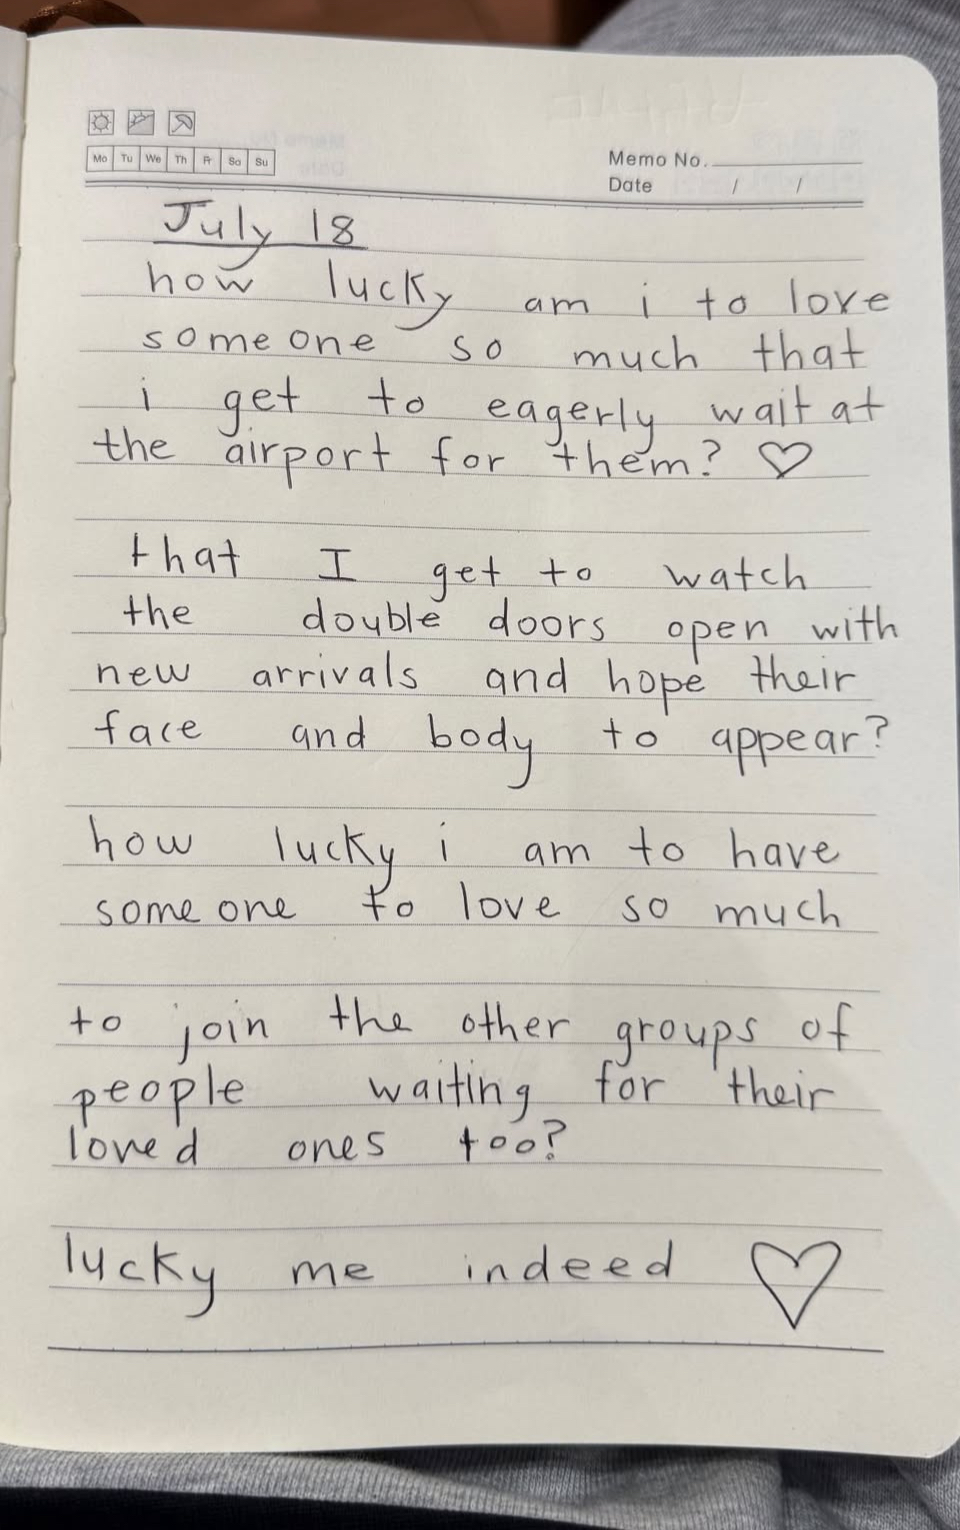 Mo Tu We Th Fr Sa Su
Memo No.
Date / /
July 18
how lucky am i to love
someone so much that
i get to eagerly wait at
the airport for them? ♡
that I get to watch
the double doors open with
new arrivals and hope their
face and body to appear?
how lucky i am to have
someone to love so much
to join the other groups of
people waiting for their
loved ones too?
lucky me indeed ♡